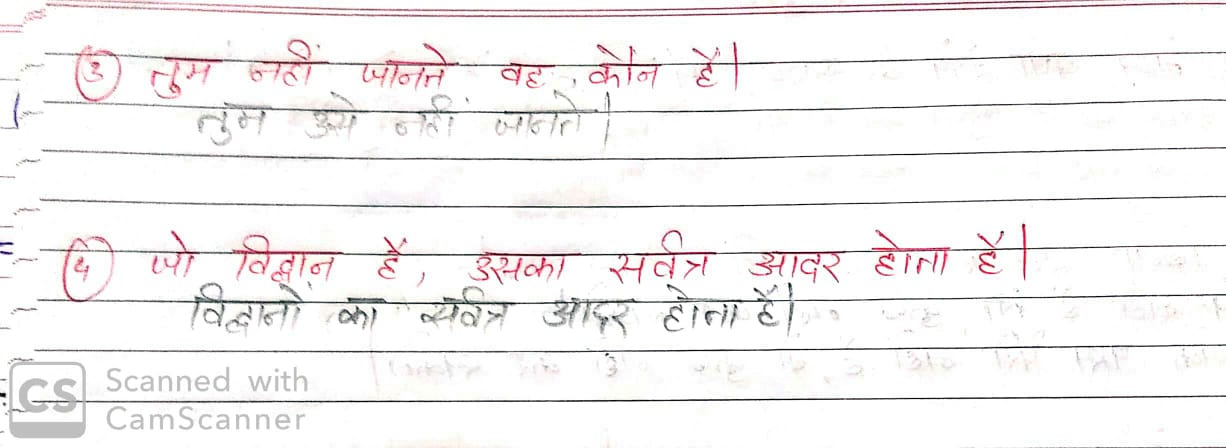 ③ तुम नहीं जानते वह कौन है।
तुम उसे नहीं जानते।
④ जो विद्वान है, उसका सर्वत्र आदर होता है।
विद्वानों का सर्वत्र आदर होता है।
CS Scanned with
CamScanner